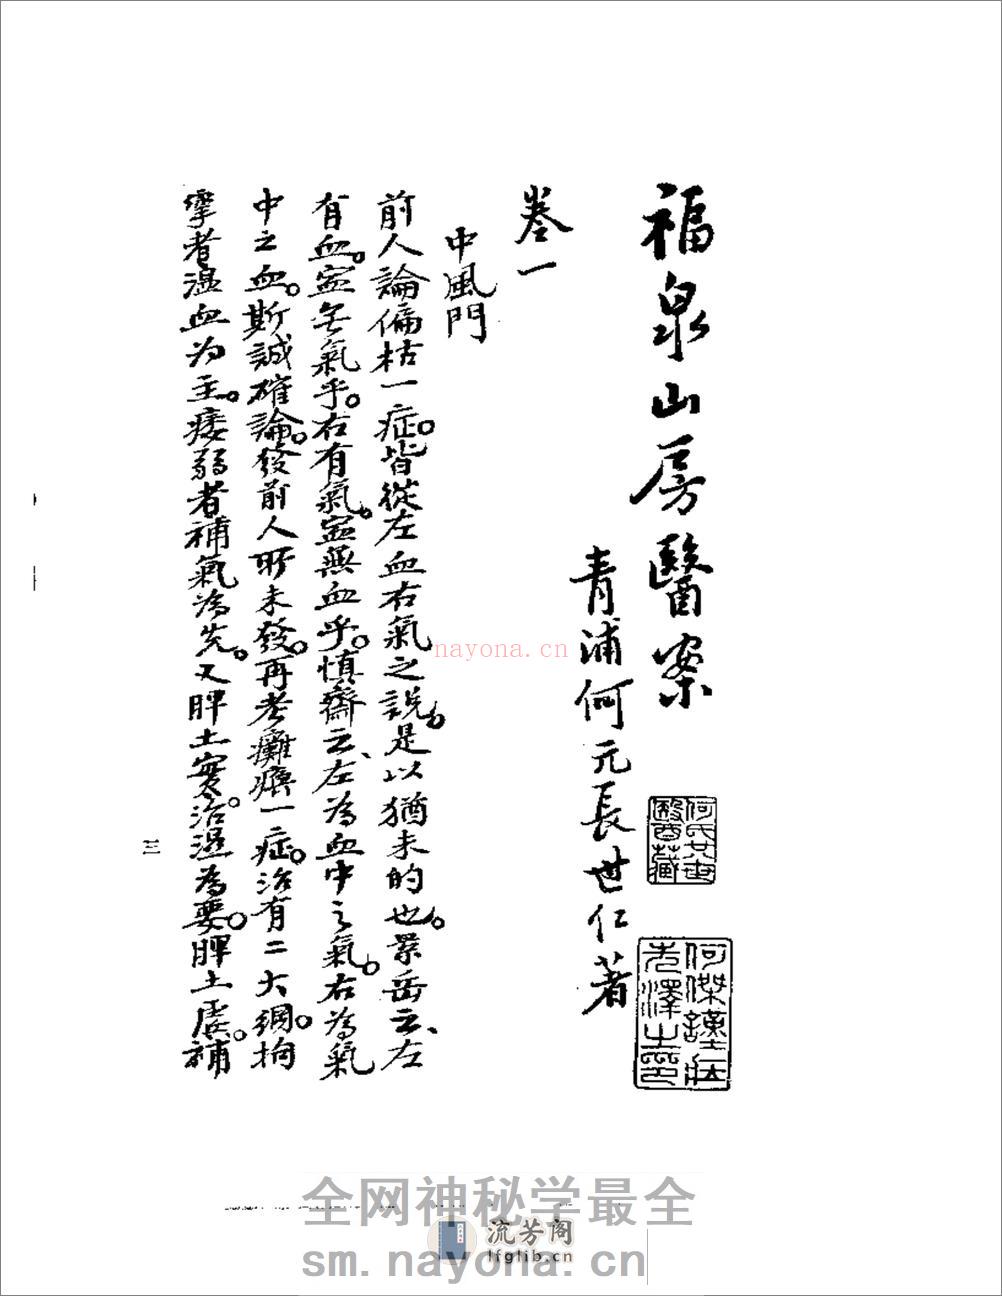 福泉山房醫案
青浦何元長世仁著
卷一
中風門
前人論偏枯一症。皆從左血右氣之說。是以猶未的也。景岳云、左
有血。寧無氣乎。右有氣。寧無血乎。慎齋云、左為血中之氣。右為氣
中之血。斯誠確論。發前人所未發。再考癱瘓一症。治有二大綱。拘
攣者溫血为主。痿弱者補氣為先。又脾土實。治濕為要。脾土虛。補
三
nayona.cn
全网神秘学最全
流芳阁
lfglib.cn
sm.nayona.cn